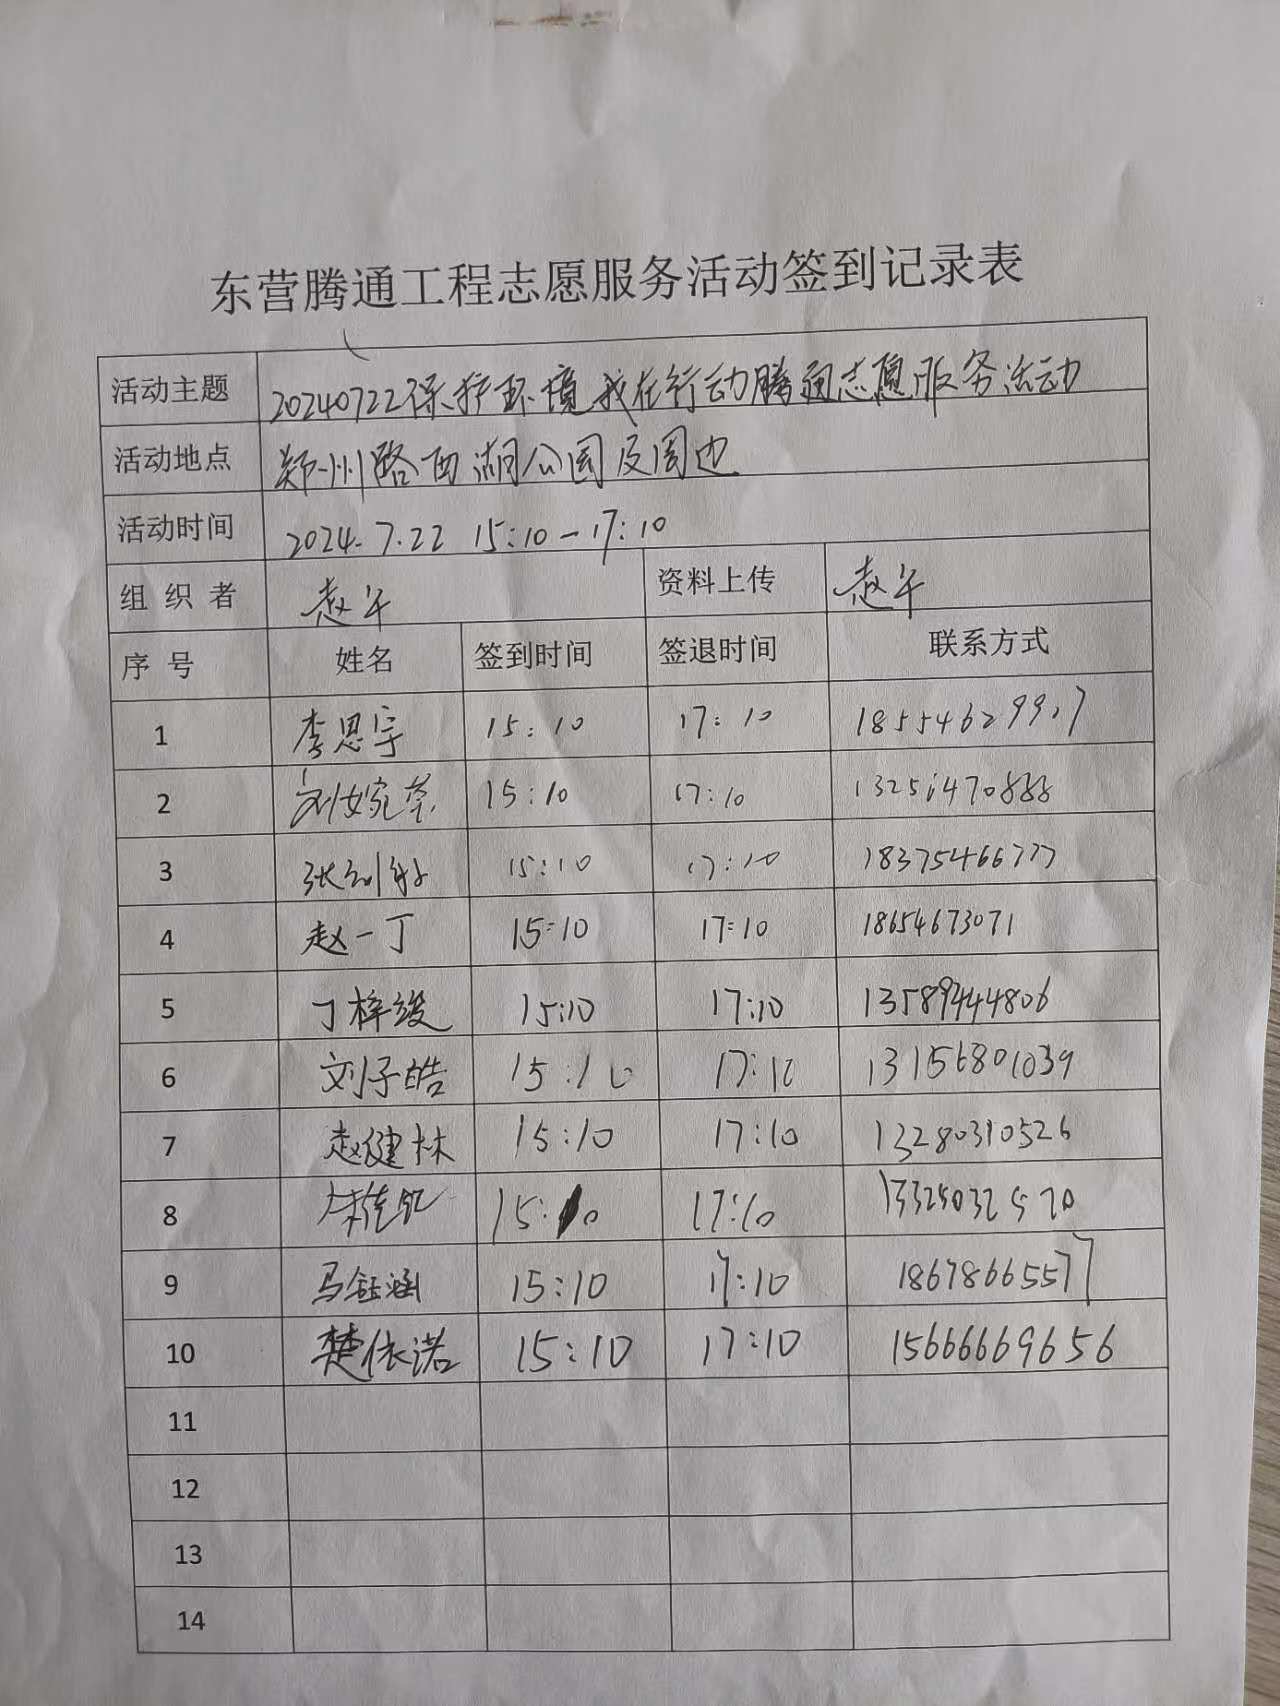 东营腾通工程志愿服务活动签到记录表
活动主题 20240722保护环境我在行动腾通志愿服务活动
活动地点 郑州路西湖公园及周边
活动时间 2024.7.22 15:10-17:10
组织者 赵午 资料上传 赵午
序号 姓名 签到时间 签退时间 联系方式
1 李思宇 15:10 17:10
2 刘婉莹 15:10 17:10 13251470888
3 15:10 17:10 18375466777
4 赵一丁 15:10 17:10 18654673071
5 丁梓竣 15:10 17:10 13589444806
6 刘子皓 15:10 17:10 13156801039
7 赵健林 15:10 17:10 13280310526
8 15:10 17:10 13325032520
9 马钰涵 15:10 17:10 18678665577
10 楚依诺 15:10 17:10 15666669656
11
12
13
14